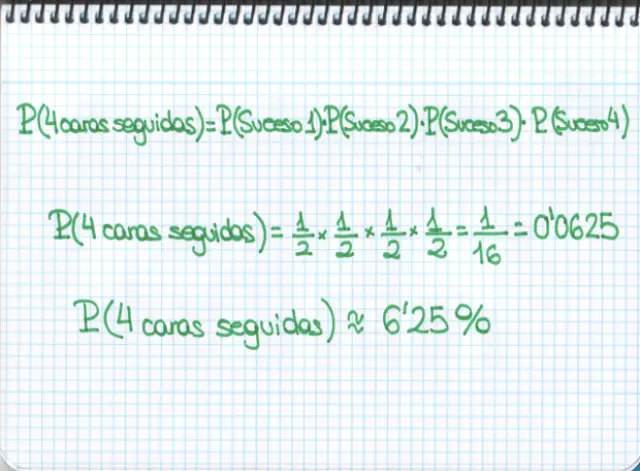 P(4 caras seguidas)=P(Suceso 1)·P(Suceso 2)·P(Suceso 3)· P(Suceso 4)
P(4 caras seguidas)= 1/2 × 1/2 × 1/2 × 1/2 = 1/16 = 0'0625
P(4 caras seguidas) ≈ 6'25%